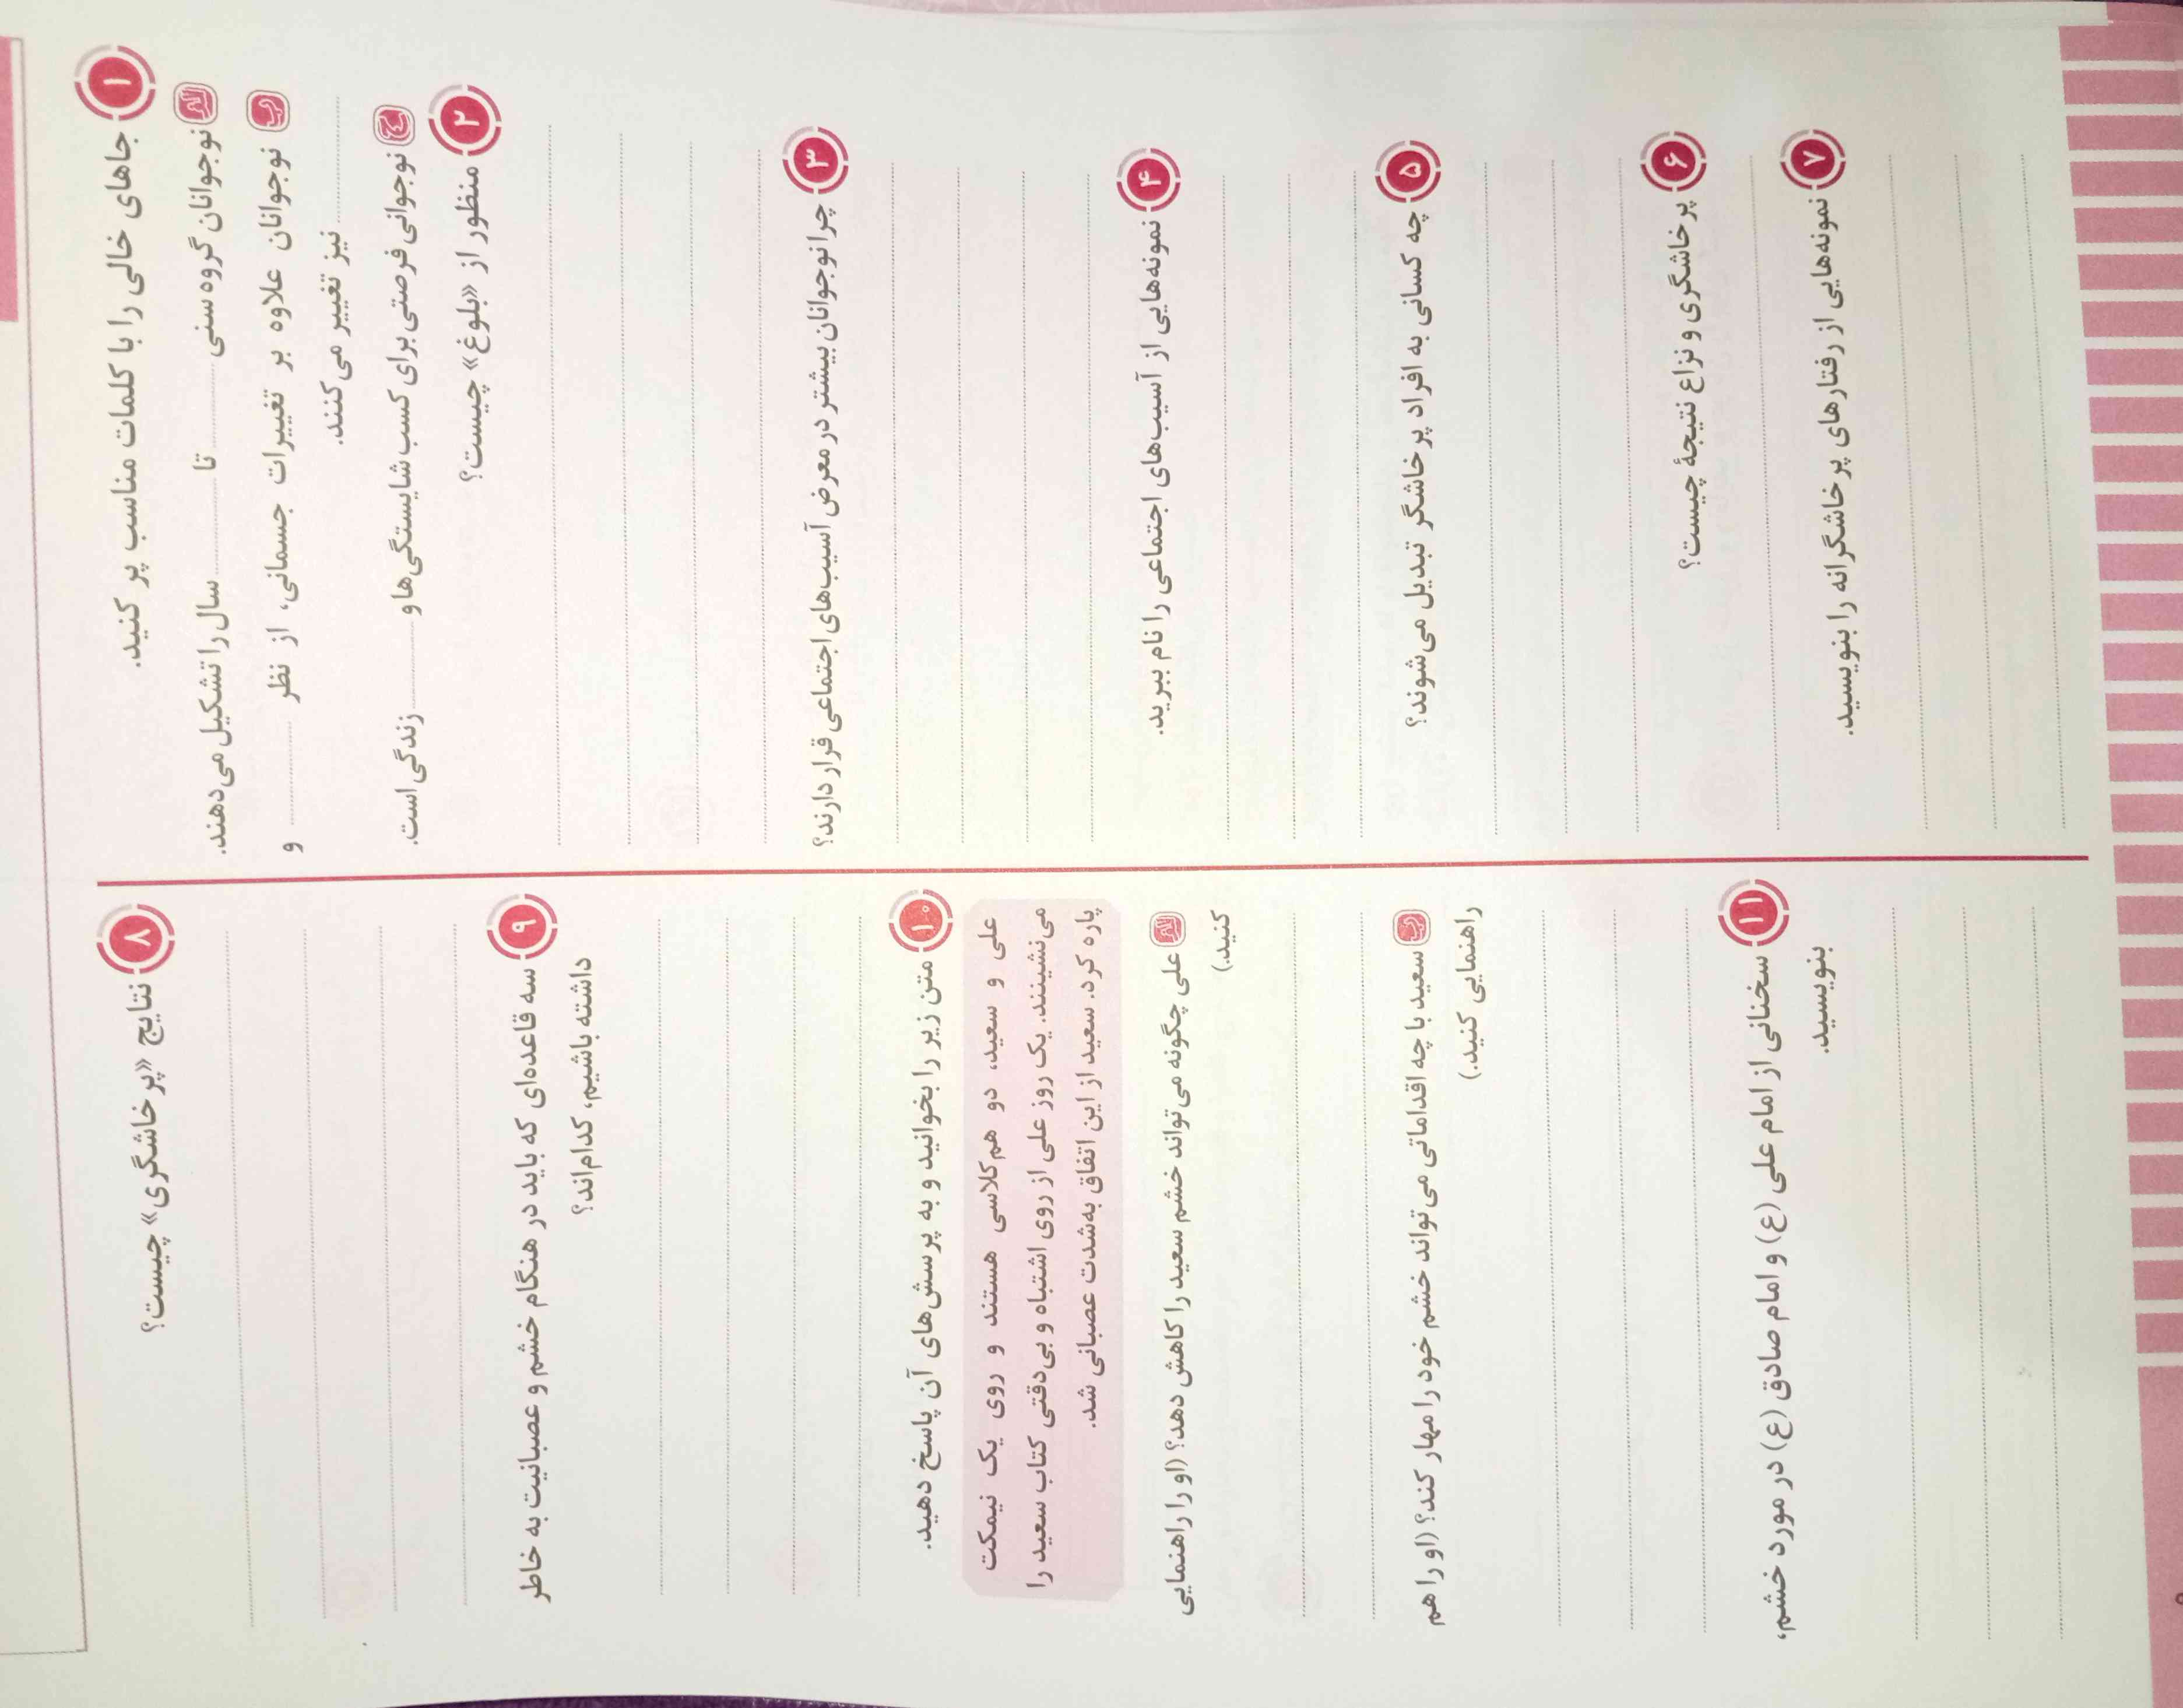 ۱ جاهای خالی را با کلمات مناسب پر کنید.
الف نوجوانان گروه سنی ........ تا ........ سال را تشکیل می‌دهند.
ب نوجوانان علاوه بر تغییرات جسمانی، از نظر ........ و
........ نیز تغییر می‌کنند.
ج نوجوانی فرصتی برای کسب شایستگی‌ها و ........ زندگی است.
۲ منظور از «بلوغ» چیست؟
۳ چرا نوجوانان بیشتر در معرض آسیب‌های اجتماعی قرار دارند؟
۴ نمونه‌هایی از آسیب‌های اجتماعی را نام ببرید.
۵ چه کسانی به افراد پرخاشگر تبدیل می‌شوند؟
۶ پرخاشگری و نزاع نتیجهٔ چیست؟
۷ نمونه‌هایی از رفتارهای پرخاشگرانه را بنویسید.
۸ نتایج «پرخاشگری» چیست؟
۹ سه قاعده‌ای که باید در هنگام خشم و عصبانیت به خاطر
داشته باشیم، کدام‌اند؟
۱۰ متن زیر را بخوانید و به پرسش‌های آن پاسخ دهید.
علی و سعید، دو هم‌کلاسی هستند و روی یک نیمکت
می‌نشینند. یک روز علی از روی اشتباه و بی‌دقتی کتاب سعید را
پاره کرد. سعید از این اتفاق به‌شدت عصبانی شد.
الف علی چگونه می‌تواند خشم سعید را کاهش دهد؟ (او را راهنمایی
کنید.)
ب سعید با چه اقداماتی می‌تواند خشم خود را مهار کند؟ (او را هم
راهنمایی کنید.)
۱۱ سخنانی از امام علی (ع) و امام صادق (ع) در مورد خشم،
بنویسید.